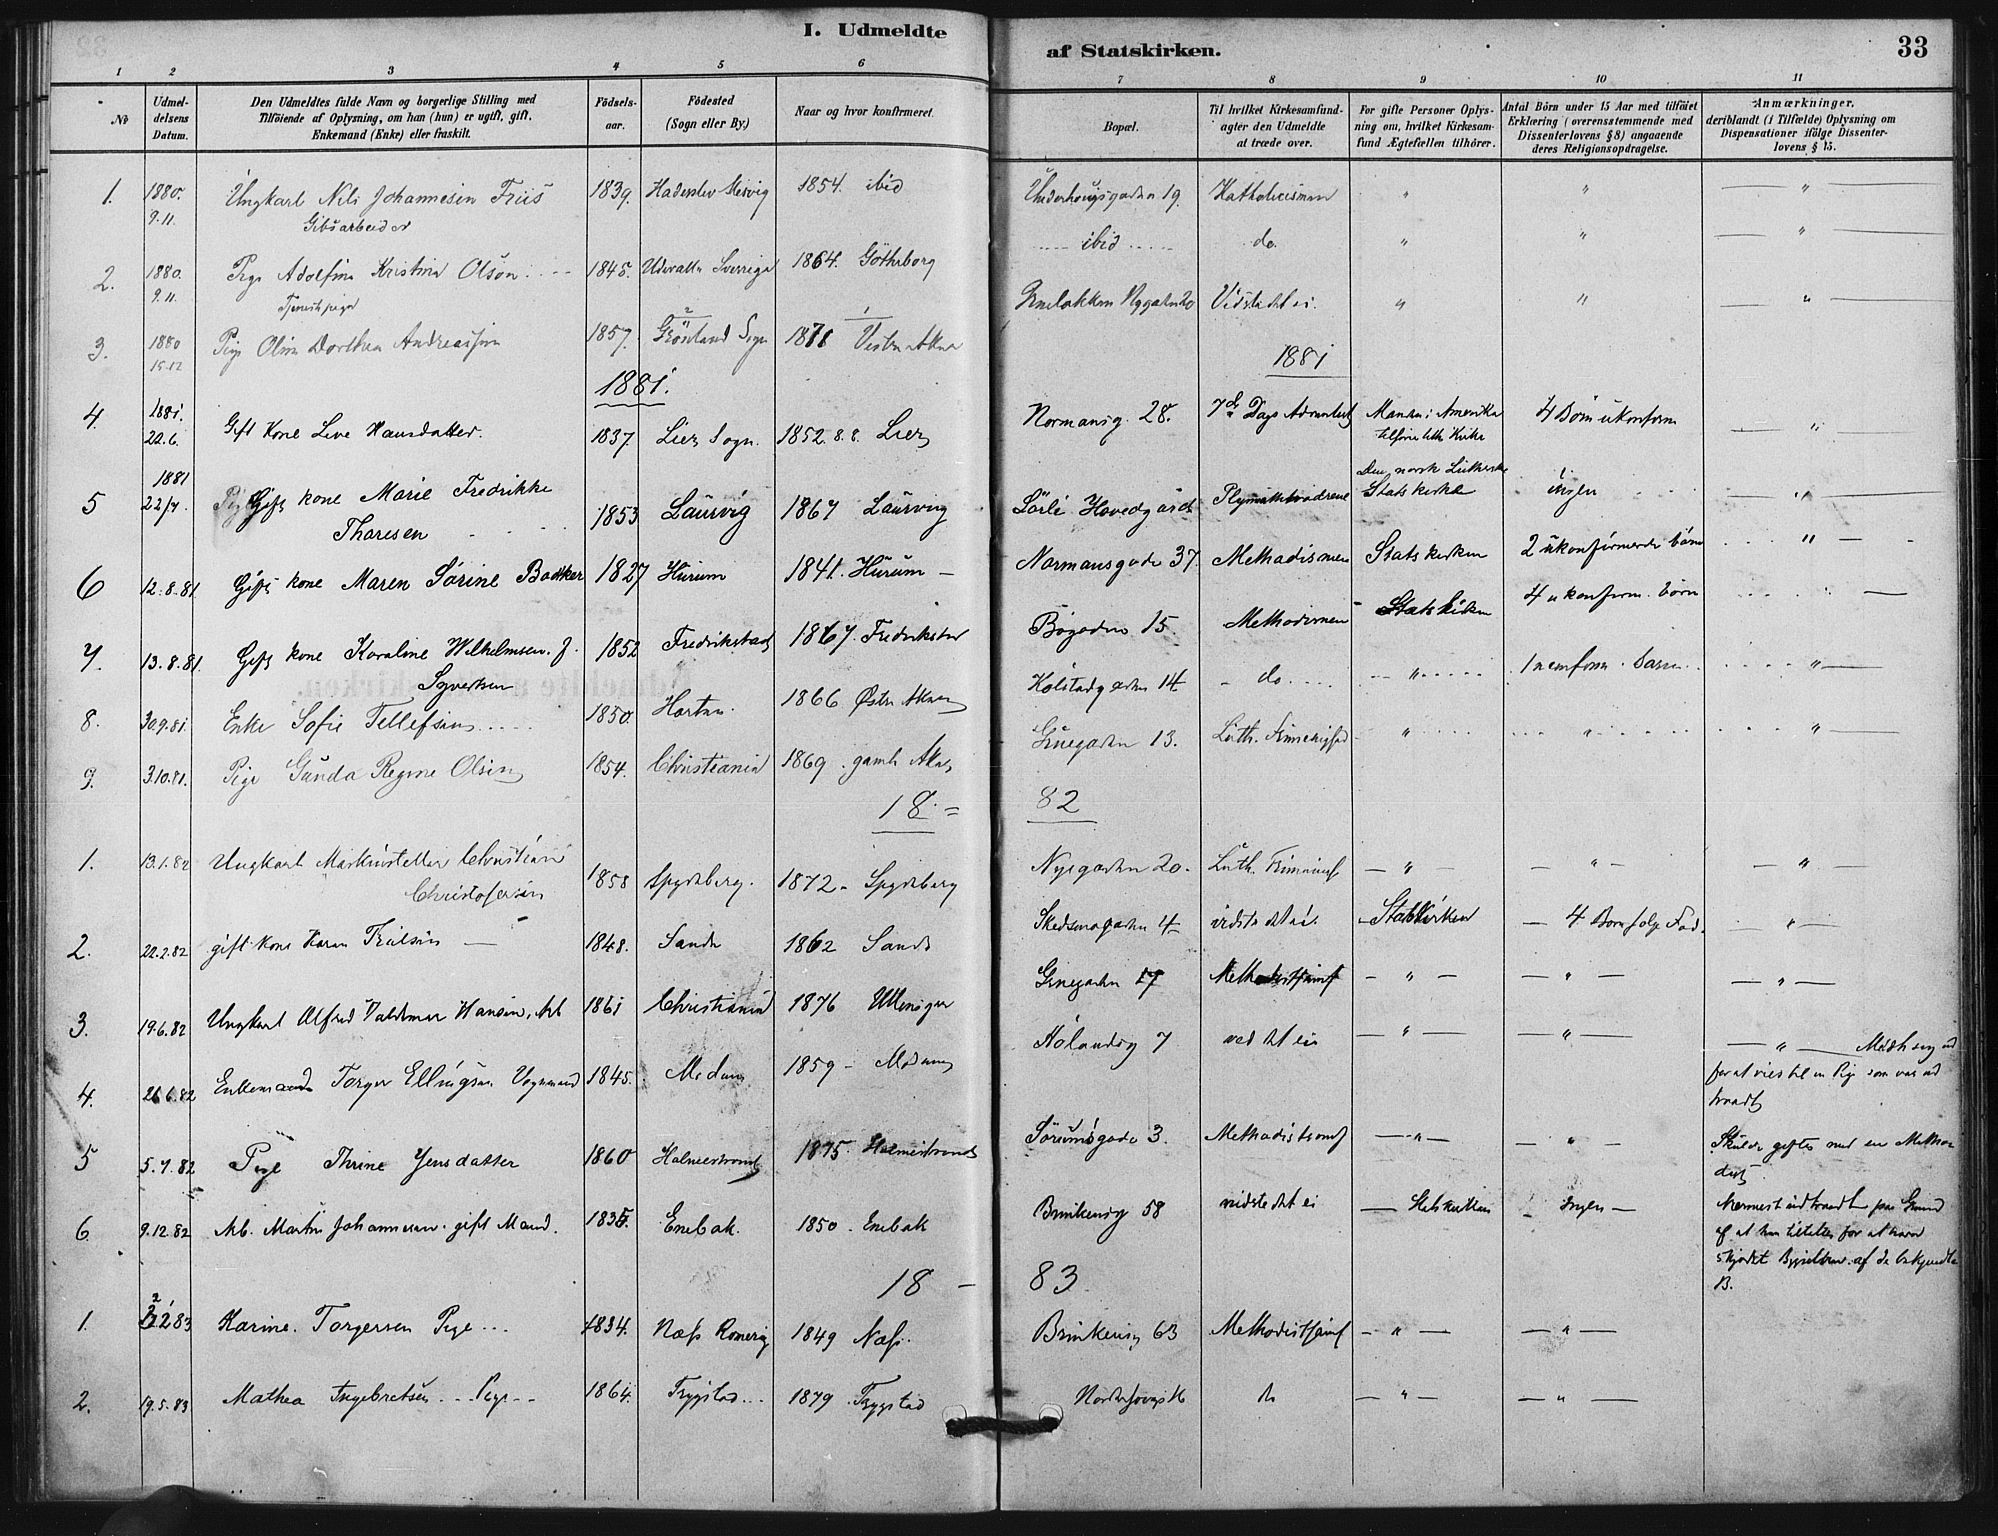 I. Udmeldte af Statskirken. 33
1 2 3 4 5 6 7 8 9 10 11
No
Udmeldelsens Datum.
Den Udmeldtes fulde Navn og borgerlige Stilling med Tilføiende af Oplysning, om han (hun) er ugift, gift, Enkemand (Enke) eller fraskilt.
Fødselsaar.
Fødested (Sogn eller By.)
Naar og hvor konfirmeret.
Bopæl.
Til hvilket Kirkesamfund agter den Udmeldte at træde over.
For gifte Personer Oplysning om, hvilket Kirkesamfund Ægtefællen tilhører.
Antal Børn under 15 Aar med tilføiet Erklæring (overensstemmende med Dissenterlovens § 8) angaaende deres Religionsopdragelse.
Anmærkninger, deriblandt (i Tilfælde) Oplysning om Dispensationer ifølge Dissenterlovens § 15.
1. 1880. 9.11. Ungkarl Nils Johannesen Friis 1839. Haderslev 1854. ibid 19. Katholicismen " " "
Gibsarbeider
2. 1880. 9.11. Pige Adolfina Kristina Olson 1845. Udevalla Sverrige 1864. Götheborg ibid do. " " "
Tjenestepige
3. 1880 15.12 Pige Olina Dorthea Andreassen 1857. Grönland Sogn 1871 Vestre Aker Vidstedet ei. " " "
1881. 1881
4. 1881. 22.6. Gift Kone Live Hansdatter. 1837. Lier Sogn. 1852. 8.8. Lier Normansg. 28. 7de Dags Adventist Manden i Amerika 4 Børn ukonform "
5 1881 22/7. Gift kone Marie Fredrikke Thoresen 1853 Laurvig 1867 Laurvig Sörli Hovedgård Plymuthbrødrene Den norsk Lutherske Statskirke ingen "
6 12.8.81 Gift kone Maren Sörine Bødker 1827 Hurum 1841. Hurum Normansgade 37. Methodismen Statskirken 2 ukonfirmerde börn "
7. 13.8.81. Gift kone Karoline Wilhelmsen. f. Syvertsen 1852 Fredrikstad 1867. Fredrikstad Bögaden 15. Methodismen Statskirken 4 ukonfirm. börn
8. 30.9.81. Enke Sofie Tellefsen 1850. Horten. 1866 Østre Aker Kolstadgaden 14 do. " 1 barn "
9. 3.10.81. Pige Gunda Regine Olsen 1854. Christiania 1869. gamle Aker 13. Luth. " " "
18 = 82
1. 13.1.82 Ungkarl Christian Christofersen 1858 Spydeberg. 1872 - Spydeberg Nygaden 20. Luth. " " "
2. 22.2.82 gift kone Karen 1848. Sande 1862 Sande Skedsmogaden 4 vidste det ei. Statskirken 4 Børn følge Fad. "
3. 19.6.82 Ungkarl Alfred Valdemar Hansen, Arb 1861 Christiania 1876 17 Methodistsamf " " "
4. 26.6.82 Enkemand Torger Ellingsen Vognmand 1845. Modum 1859 - Modum Hölandsg 7 ved det ei " " " Meldte sig ud for at vies til en Pige som var udtraadt
5 5.7.82 Pige Thrine Jensdatter 1860 Holmestrand 1875. Holmestrand Sörumsgade 3. Methodistsamf " " Skulde giftes med en Methodist
6. 9.12.82 Arb. Martin Johannesen. gift Mand. 1835. Enebak. 1850. Enebak Brinkensg 58 vidste det ei Statskirken Ingen Nærmest udtraadt paa Grund af at han for at have B.
18 - 83
1. 2.83 Karine Torgersen Pige 1834. Næss Romerig 1849 Næss. Brinkensg 63 Methodistsamf " "
2. 19.5.83 Mathea Ingebretsen Pige 1864. Trygstad 1879 Trygstad " "